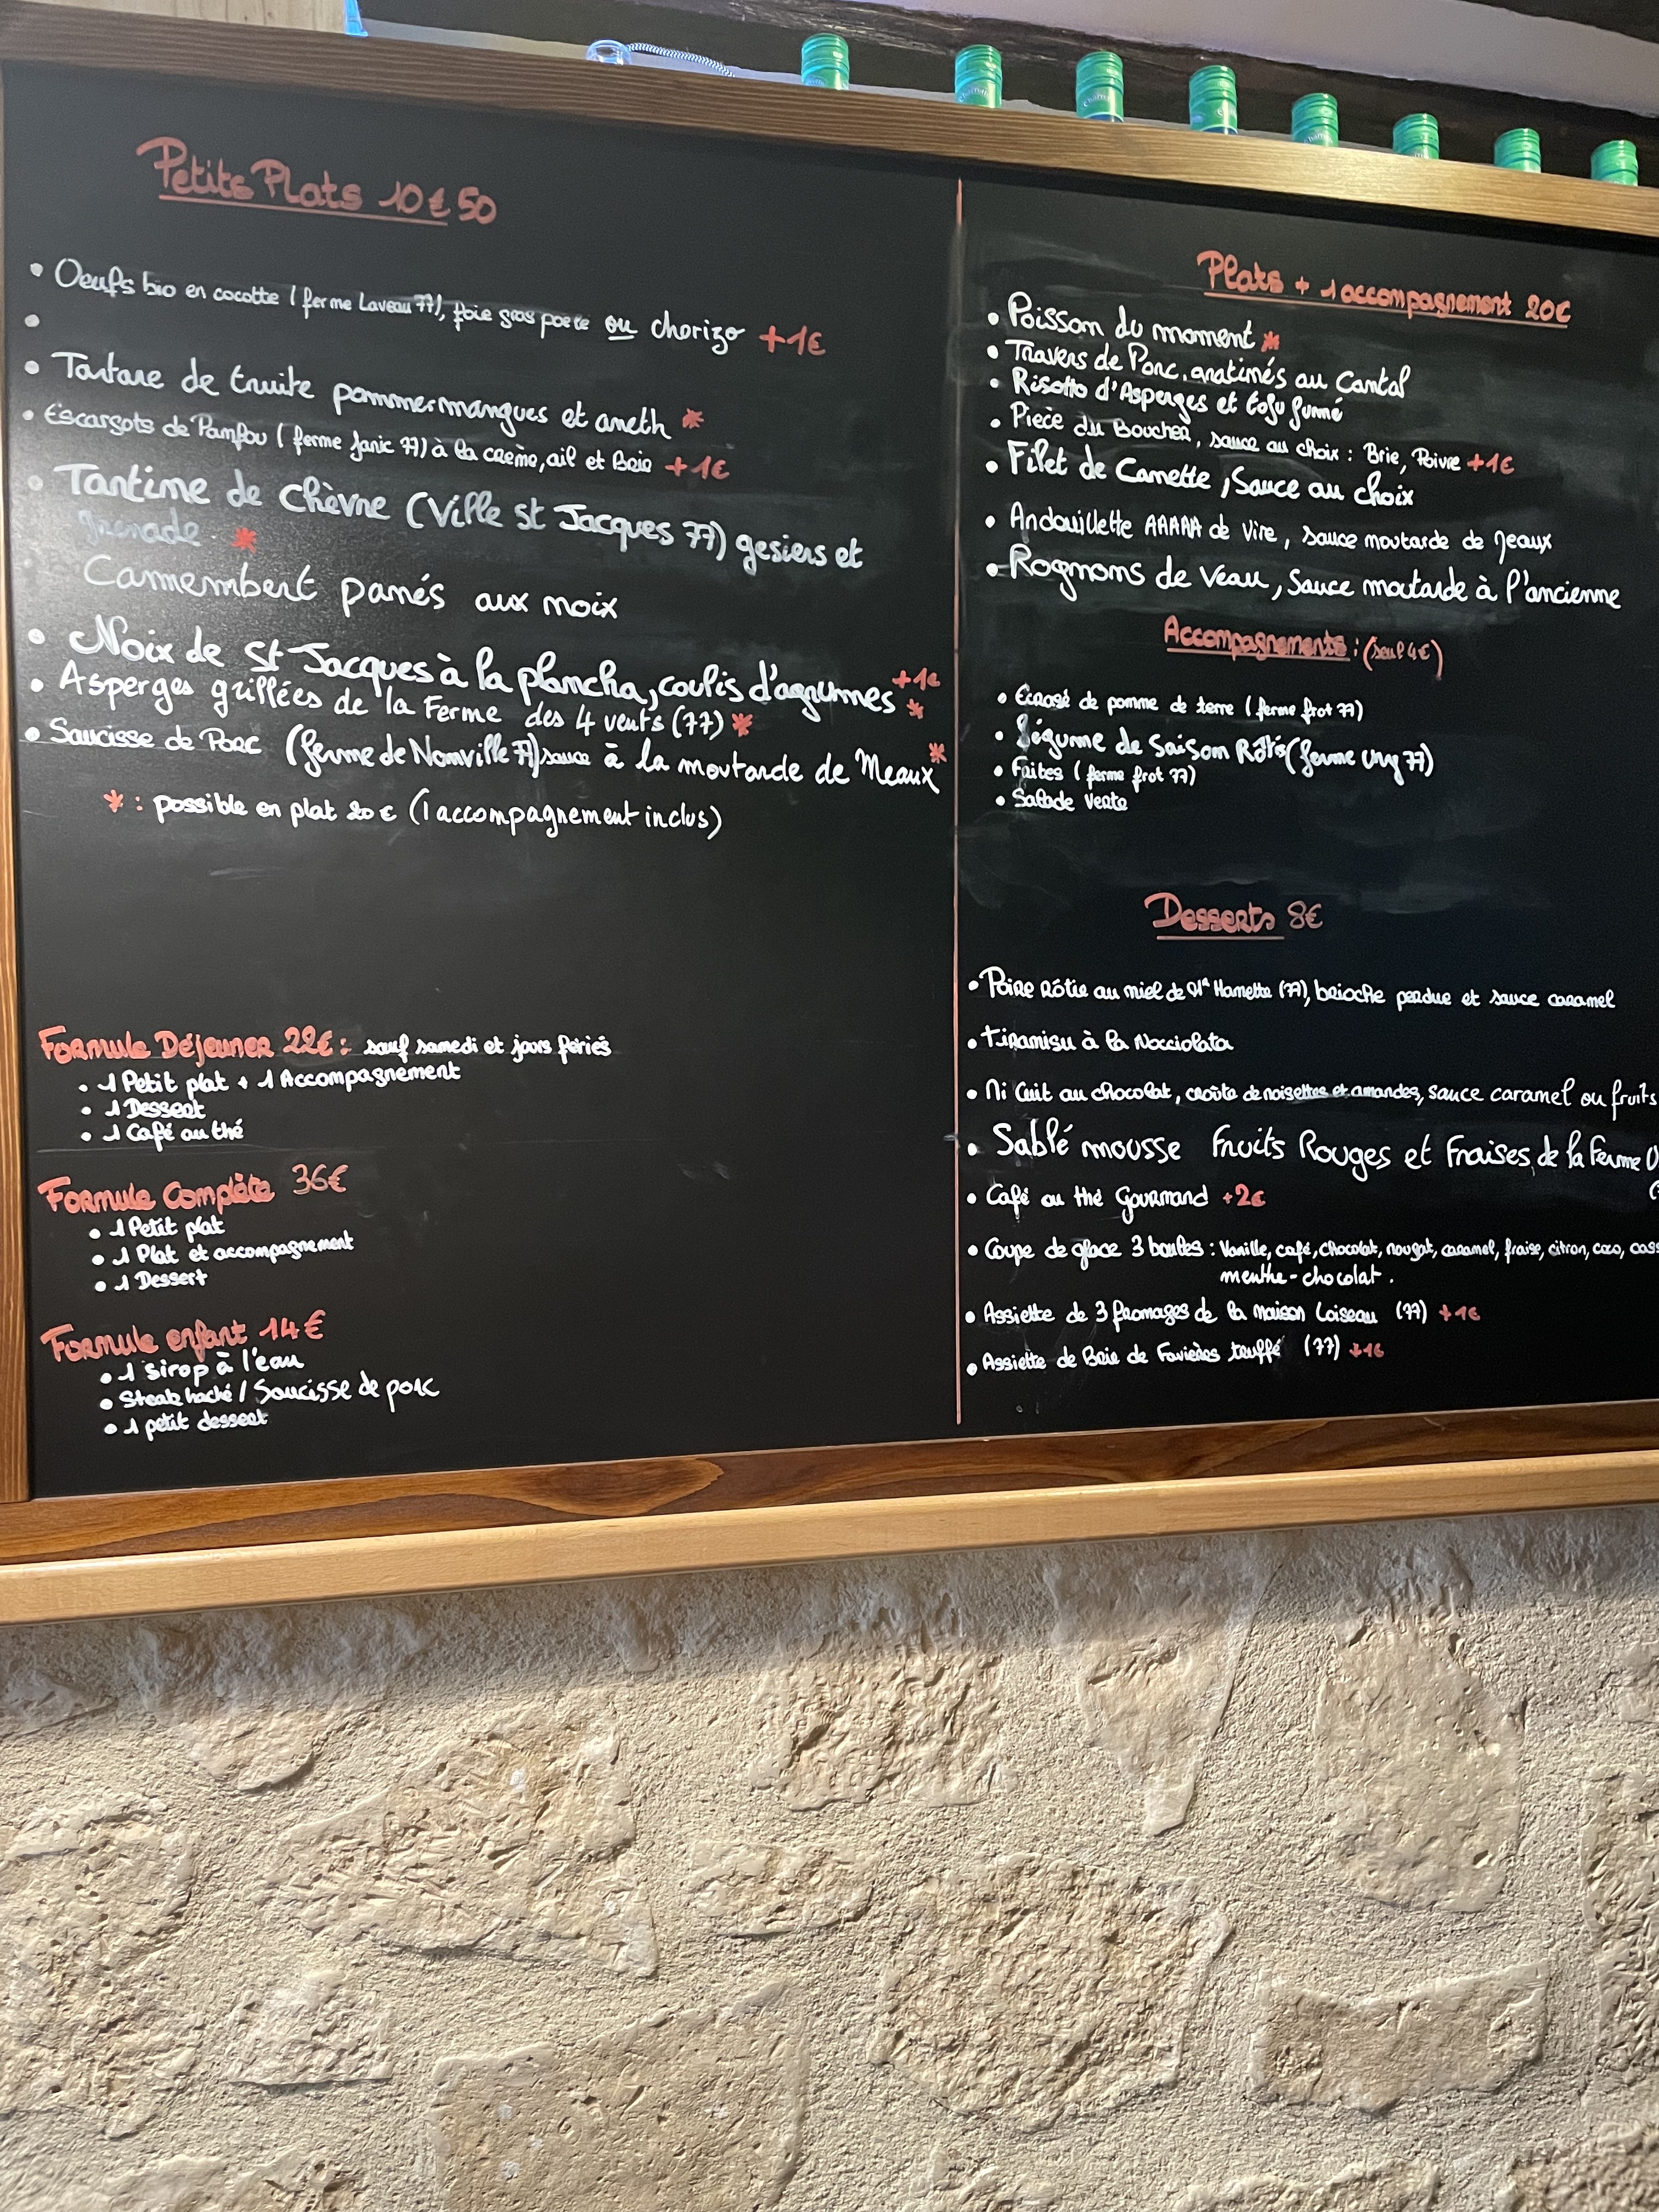 Petits Plats 10€50
• Oeufs bio en cocotte (ferme Laveau 77), foie gras poelé ou chorizo +1€
•
• Tartare de truite pommes mangues et aneth *
• Escargots de Pamfou (ferme Janic 77) à la crème, ail et Brie +1€
• Tartine de Chèvre (Ville st Jacques 77) gesiers et
grenade *
Camembert panés aux noix
• Noix de St Jacques à la plancha, coulis d'agrumes +1€ *
• Asperges grillées de la Ferme des 4 vents (77) *
• Saucisse de Porc (ferme de Nonville 77) sauce à la moutarde de Meaux *
* : possible en plat 20€ (1 accompagnement inclus)
Formule Déjeuner 22€ : sauf samedi et jours fériés
• 1 Petit plat + 1 Accompagnement
• 1 Dessert
• 1 Café ou thé
Formule Complète 36€
• 1 Petit plat
• 1 Plat et accompagnement
• 1 Dessert
Formule enfant 14€
• 1 sirop à l'eau
• Steak haché / Saucisse de porc
• 1 petit dessert
Plats + 1 accompagnement 20€
• Poisson du moment *
• Travers de Porc, gratinés au Cantal
• Risotto d'Asperges et tofu fumé
• Pièce du Boucher, sauce au choix : Brie, Poivre +1€
• Filet de Canette, Sauce au choix
• Andouillette AAAAA de Vire, sauce moutarde de Meaux
• Rognons de Veau, Sauce moutarde à l'ancienne
Accompagnements : (seul 4€)
• Ecrasé de pomme de terre (ferme frot 77)
• Légume de Saison Rôtis (ferme Ung 77)
• Frites (ferme frot 77)
• Salade Verte
Desserts 8€
• Poire Rôtie au miel de Mr Hamette (77), brioche perdue et sauce caramel
• Tiramisu à la Nocciolata
• Mi Cuit au chocolat, croûte de noisettes et amandes, sauce caramel ou fruits
• Sablé mousse Fruits Rouges et Fraises, de la Ferme
• Café ou thé Gourmand +2€
• Coupe de glace 3 boules : Vanille, café, chocolat, nougat, caramel, fraise, citron, coco, cass
menthe-chocolat.
• Assiette de 3 fromages de la maison Loiseau (77) +1€
• Assiette de Brie de Favières truffé (77) +1€